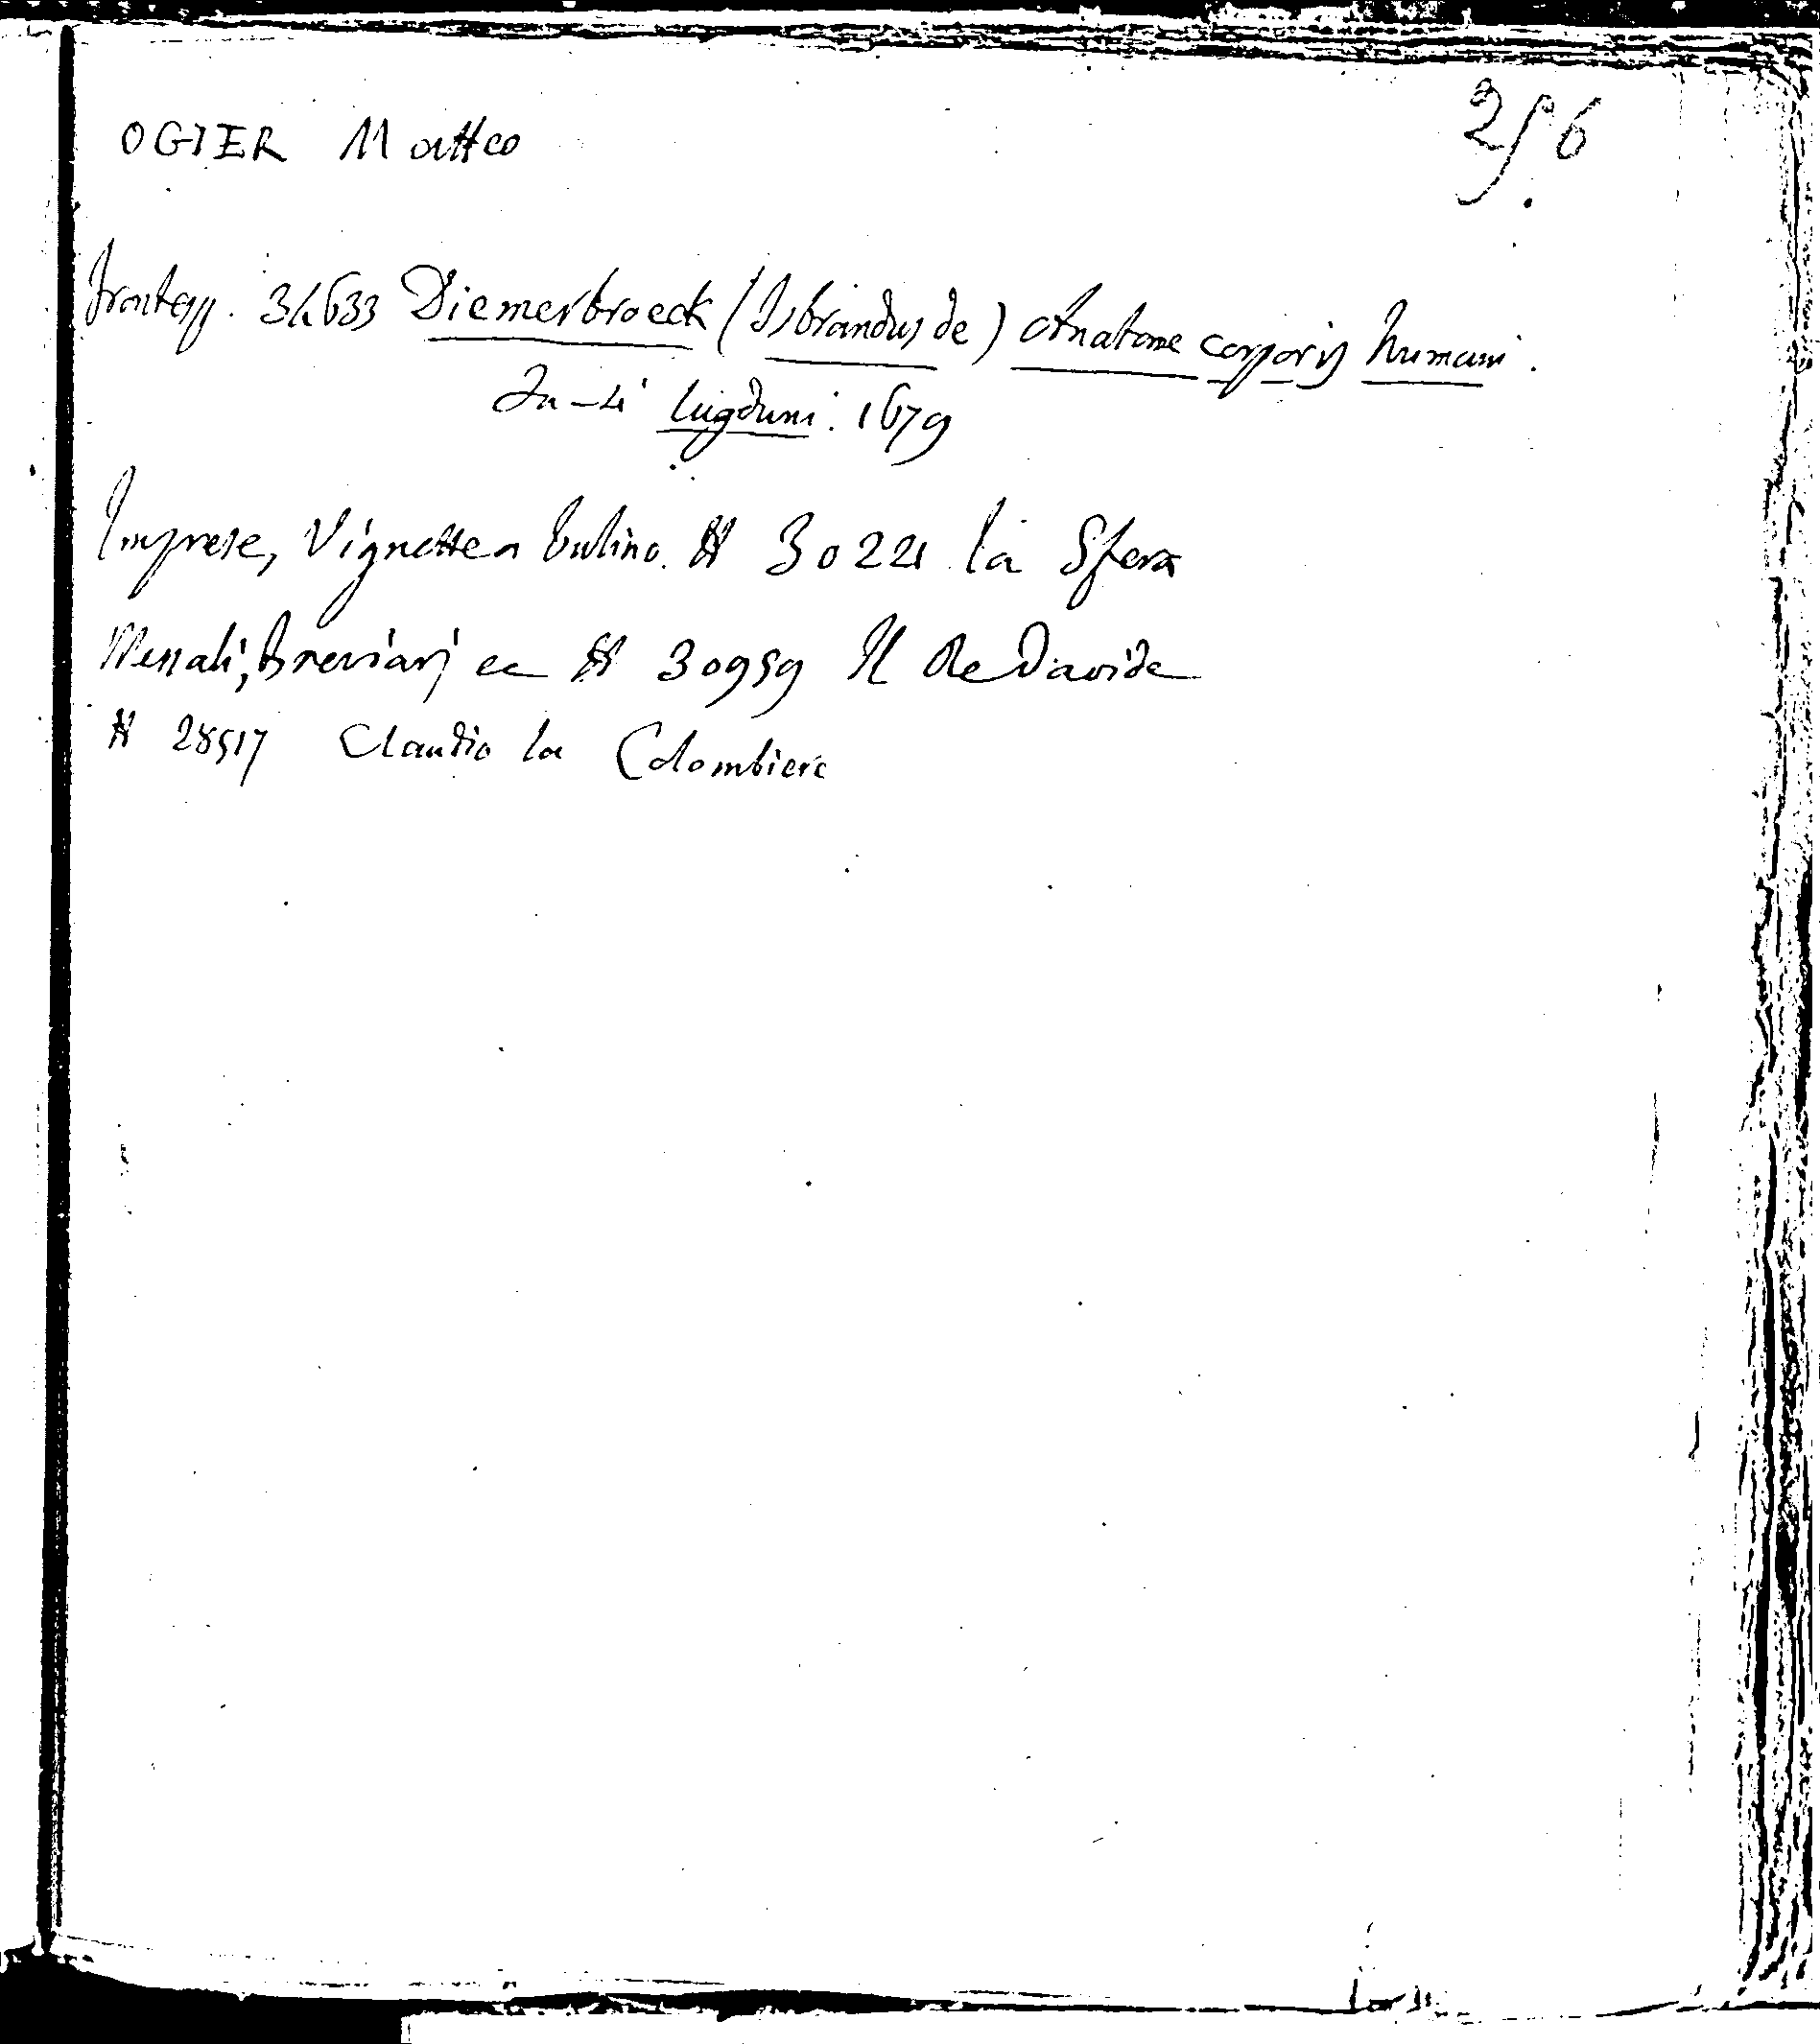 256
OGIER Matteo
frontesp. 34633 Diemerbroeck (Isbrandus de) Anatome corporis humani.
In-4 Lugduni. 1679
Imprese, Vignette a bulino. # 30221 la Sfera
Messali, Breviarj ec # 30959 Il Re Davide
# 28517 Claudio la Colombiere